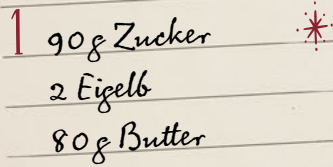 1 90g Zucker
2 Eigelb
80g Butter